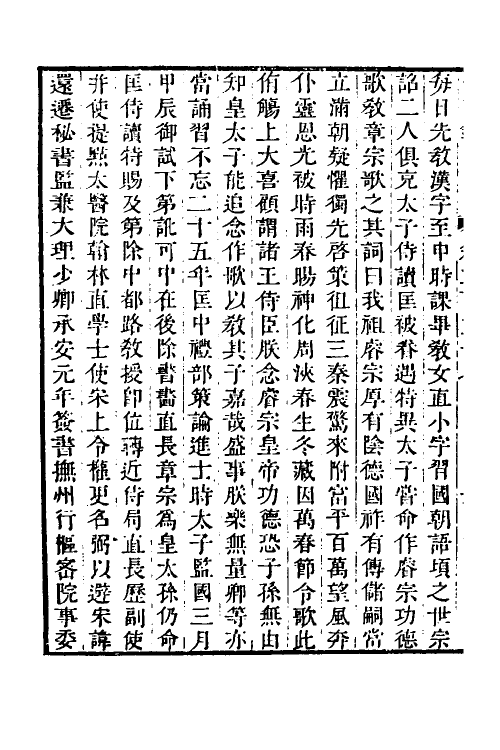 每日先教漢字至申時課畢教女直小字習國朝語頃之世宗
詔二人俱充太子侍讀匡被眷遇特異太子嘗命作睿宗功德
歌教章宗歌之其詞曰我祖睿宗厚有陰德國祚有傳儲嗣當
立滿朝疑懼獨先啓策徂征三秦震驚來附富平百萬望風奔
仆靈恩光被時雨春暘神化周浹春生冬藏因萬春節令歌此
侑觴上大喜顧謂諸王侍臣朕念睿宗皇帝功德恐子孫無由
知皇太子能追念作歌以教其子嘉哉盛事朕樂無量卿等亦
當誦習不忘二十五年匡中禮部策論進士時太子監國三月
甲辰御試下第訛可中在後除書畵直長章宗為皇太孫仍命
匡侍讀特賜及第除中都路教授即位轉近侍局直長歷副使
升使提點太醫院翰林直學士使宋上令權更名弼以避宋諱
還遷秘書監兼大理少卿承安元年簽書撫州行樞密院事委